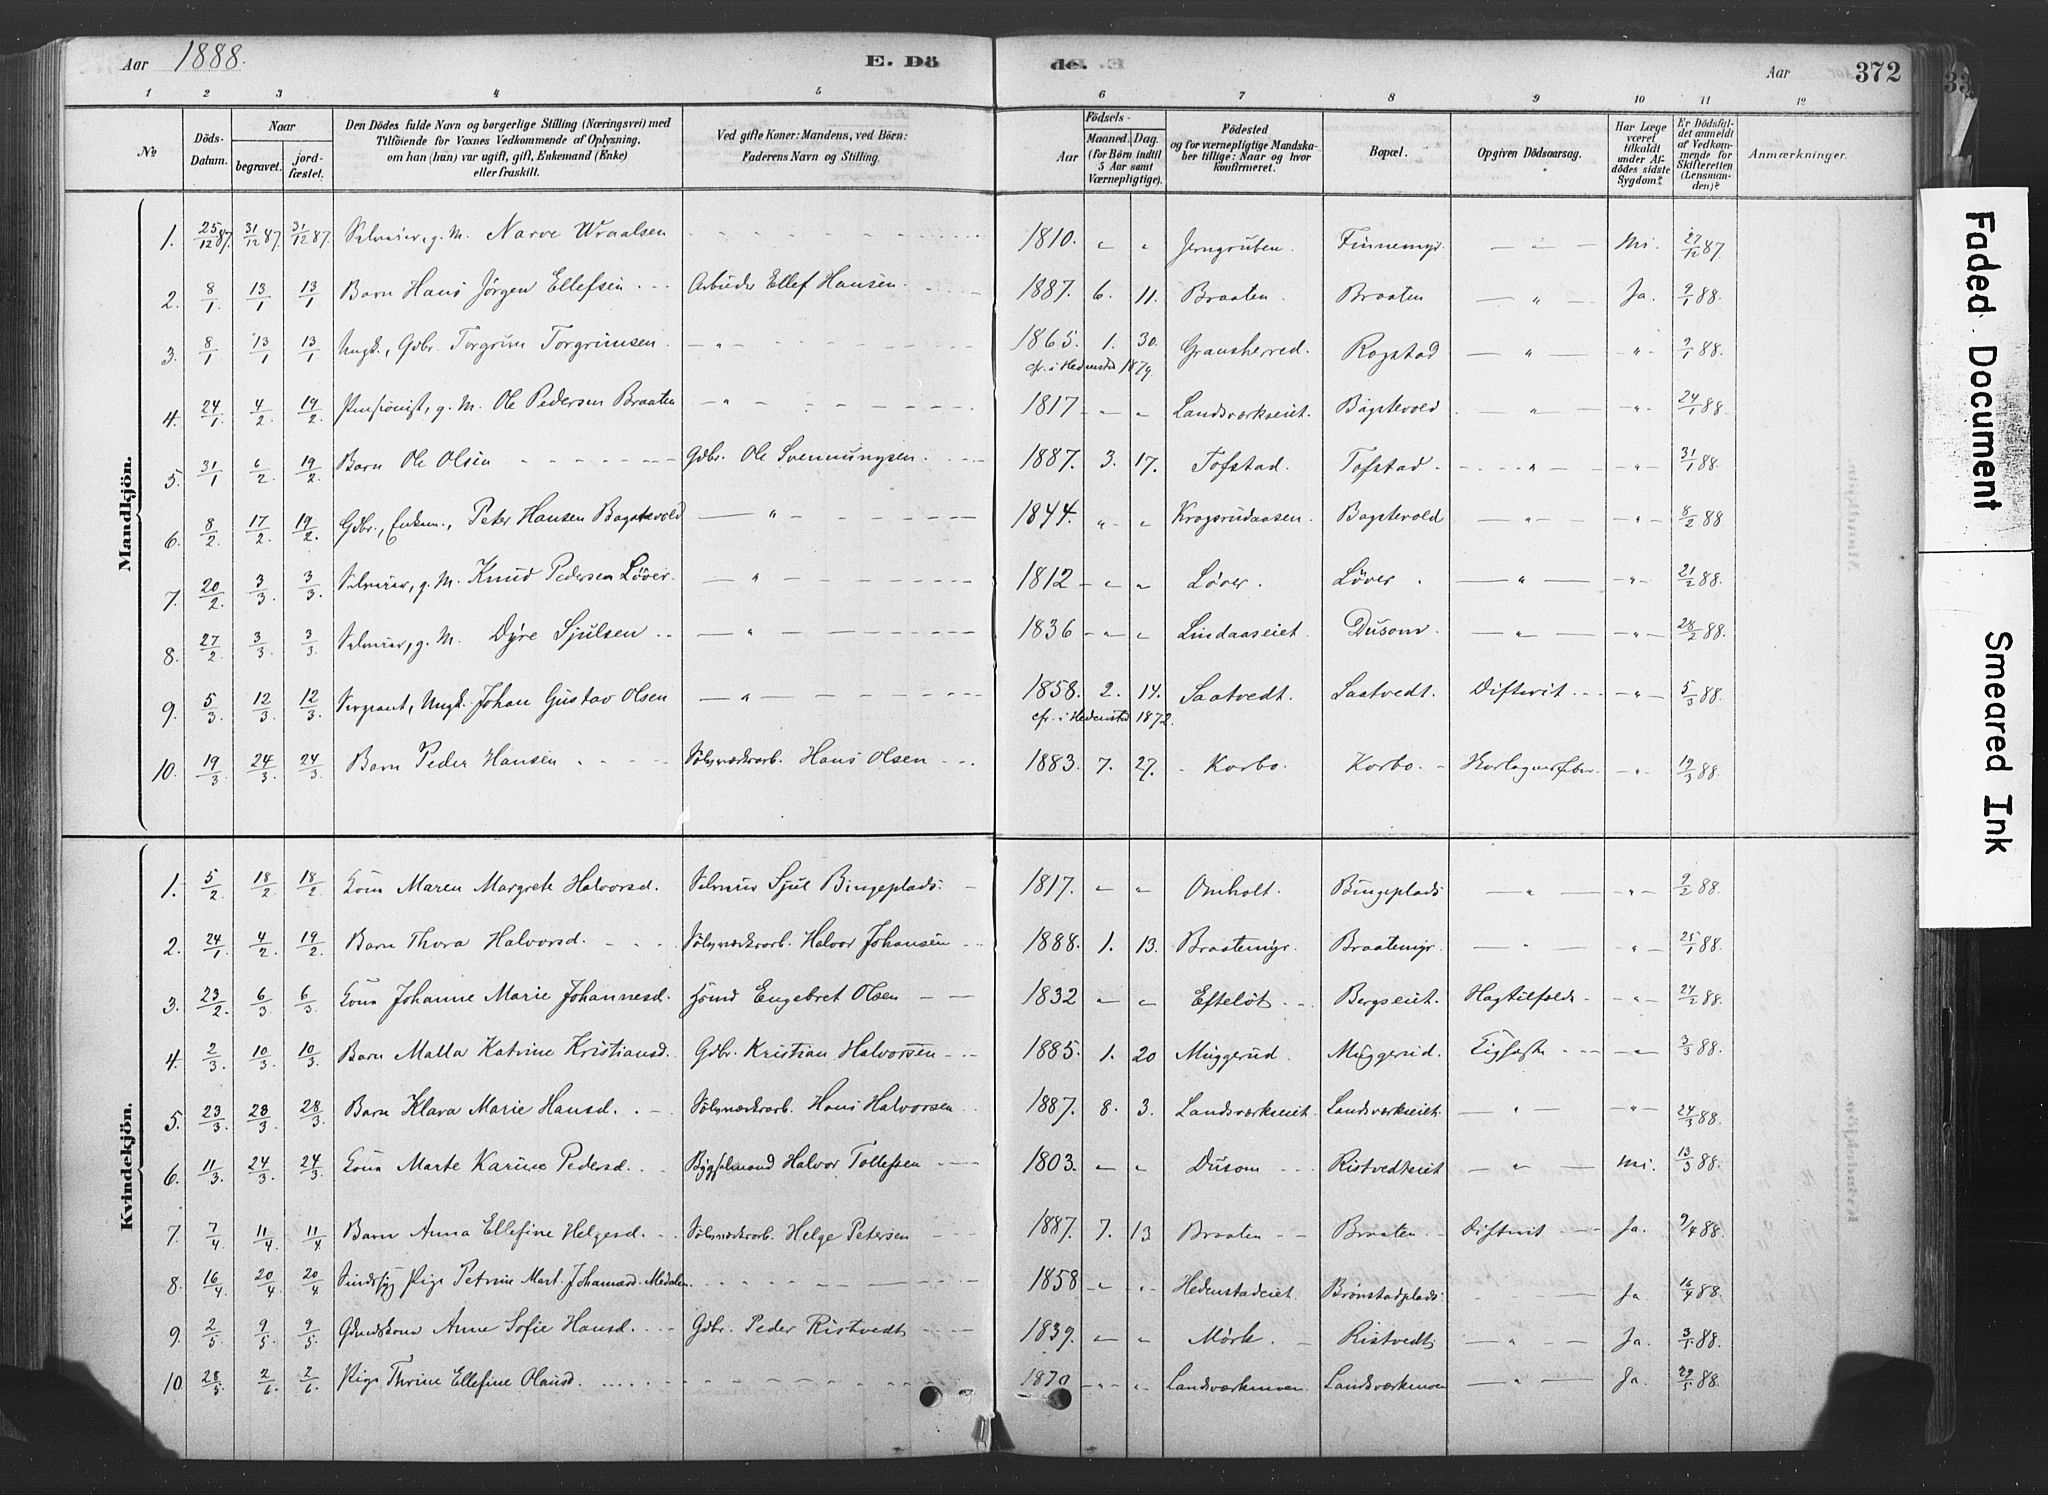 Aar 1888. E. Dö de. Aar 372
1 2 3 4 5 6 7 8 9 10 11 12
No Döds-Datum. Naar begravet. jord-fæstet. Den Dödes fulde Navn og borgerlige Stilling (Næringsvei) med Tilföiende for Voxnes Vedkommende af Oplysning, om han (hun) var ugift, gift, Enkemand (Enke) eller fraskilt. Ved gifte Koner: Mandens, ved Börn: Faderens Navn og Stilling. Födsels- Aar Maaned. Dag. (for Börn indtil 5 Aar samt Værnepligtige). Födested og for værnepligtige Mandskaber tillige: Naar og hvor konfirmeret. Bopæl. Opgiven Dödsaarsag. Har Læge været tilkaldt under Afdödes sidste Sygdom? Er Dödsfaldet anmeldt af Vedkommende for Skifteretten (Lensmanden)? Anmærkninger.
Mandkjön.
1. 25/12 87. 31/12 87. 31/12 87. Selveier, g. M. Narve Wraalsen 1810. " " Jerngruben. Finnemyr. — " — Nei. 27/12 87
2. 8/1 13/1 13/1 Barn Hans Jörgen Ellefsen Arbeider Ellef Hansen. 1887. 6. 11. Braaten. Braaten — " — Ja. 9/1 88.
3. 8/1 13/1 13/1 Ungk., Gdbr. Torgrim Torgrimsen — " — 1865. 1. 30. Gransherred. Rogstad — " — " 9/1 88.
cfr. i Hedensted 1879.
4. 24/1 4/2 19/2 Pensionist, g. M. Ole Pedersen Braaten — " — 1817 " " Landsværkseiet. Bögstevold — " — " 24/1 88.
5. 31/1 6/2 19/2 Barn Ole Olsen Gdbr. Ole Svennungsen. 1887. 3. 17. Tofstad. Tofstad. — " — " 31/1 88.
6. 8/2 17/2 19/2 Gdbr., Enkem., Peter Hansen Bogstevold — " — 1844. " " Krogsrudaasen. Bogstevold — " — " 8/2 88.
7. 20/2 3/3 3/3 Selveier, g. M. Knud Pedersen Löver. — " — 1812 " " Löver. Löver. — " — " 21/2 88.
8. 27/2 3/3 3/3 Selveier, g. M. Dyre Sjulsen — " — 1836 " " Lindaaseiet. Dusom. — " — " 28/2 88.
9. 5/3 12/3 12/3 Sergeant, Ungk. Johan Gustav Olsen — " — 1858. 2. 14. Saatvedt. Saatvedt. Difterit " 5/3 88.
cfr. i Hedensted 1872.
10. 19/3 24/3 24/3 Barn Peder Hansen Sölvværksarb. Hans Olsen 1883. 7. 27. Korbo. Korbo. Skarlagensfeber. " 19/3 88.
Kvindekjön.
1. 5/2 18/2 18/2 Kona Maren Margrete Halvorsd. Selveier Sjul Bingeplads. 1817. " " Omholt. Bingeplads — " — " 9/2 88.
2. 24/1 4/2 19/2 Barn Thora Halvorsd. Sölvværksarb. Halvor Johansen 1888. 1. 13. Braatemyr. Braatemyr. — " — " 25/1 88.
3. 23/2 6/3 6/3 Kona Johanne Marie Johannesd. Engebret Olsen 1832 " " Efteløt Bergseiet. " 24/2 88.
4. 2/3 10/3 10/3 Barn Malla Katrine Kristiansd. Gdbr. Kristian Halvorsen 1885. 1. 20 Muggerud. Muggerud. " 3/3 88.
5. 23/3 28/3 28/3 Barn Klara Marie Hansd. Sölvværksarb. Hans Halvorsen 1887. 8. 3. Landsværkseiet Landsværkseiet. — " — " 24/3 88.
6. 11/3 24/3 24/3 Kona Marte Karine Pedersd. Bygselmand Halvor Tollefsen 1803. " " Dusom Ristvedteiet — " — Nei. 13/3 88.
7. 7/4 11/4 11/4 Barn Anna Ellefine Helgesd. Sölvværksarb. Helge Petersen 1887. 7. 13 Braaten Braaten Difterit Ja. 9/4 88.
8. 16/4 20/4 20/4 Sindssyg Pige Petrine Mart. Johannesd. Medalen. 1858 " " Hedenstadeiet. Brönstadplads. Ja. 16/4 88.
9. 2/5 9/5 9/5 Gdmdskona Anne Sofie Hansd. Gdbr. Peder Ristvedt 1839. " " Mörk. Ristvedt — " — Ja. 3/5 88.
10 28/5 2/6 2/6 Pige Thrine Ellefine Olausd. 1870 " " Landsværkmoen. Landsværkmoen — " — Ja. 29/5 88.
Faded Document
Smeared Ink